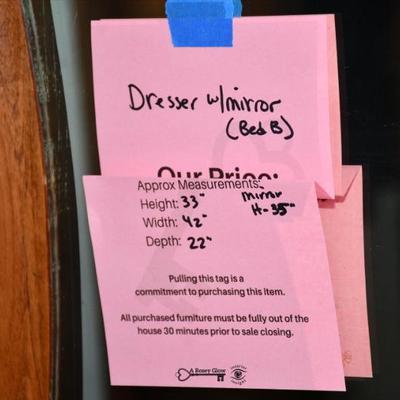 Dresser w/mirror
(Bed B)
Our Price:
Approx Measurements:
Height: 33"
mirror
H-35"
Width: 42"
Depth: 22"
Pulling this tag is a
commitment to purchasing this item.
All purchased furniture must be fully out of the
house 30 minutes prior to sale closing.
A Rosey Glow